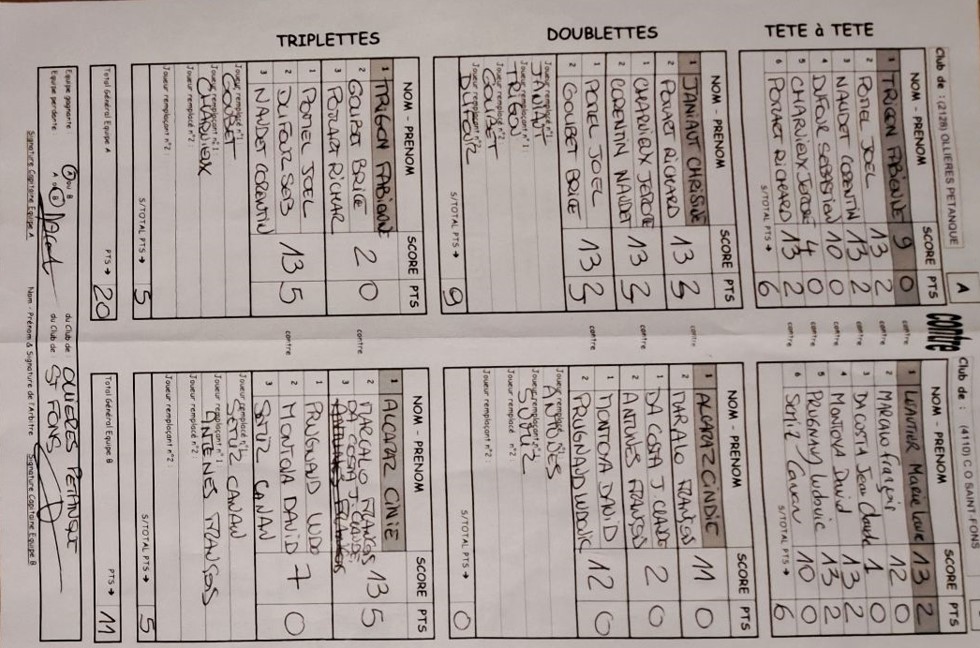 Club de : (2128) OLLIERES PETANQUE
A
contre
Club de : (4110) C O SAINT FONS
TETE à TETE
NOM - PRENOM SCORE PTS
1 TRIGON FABIENNE 9 0
2 POTIEL JOEL 13 2
3 NAUDET CORENTIN 13 2
4 DUFOUR SEBASTIEN 10 0
5 CHARVIEUX JEROME 4 0
6 POYART RICHARD 13 2
S/TOTAL PTS → 6
contre
contre
contre
contre
contre
contre
NOM - PRENOM SCORE PTS
1 Marie Laure 13 2
2 MARCALO françois 12 0
3 DA COSTA Jean Claude 1 0
4 MONTOYA David 13 2
5 PRUGNAUD Ludovic 13 2
6 Canan 10 0
S/TOTAL PTS → 6
DOUBLETTES
NOM - PRENOM SCORE PTS
1 JANIAUT CHRISINE 13 3
2 POYART RICHARD
1 CHARVIEUX JEROME 13 3
2 CORENTIN NAUDET
1 POTIEL JOEL 13 3
2 GOUBET BRICE
Joueur remplacé n°1 :
JANIAUT
Joueur remplaçant n°1 :
TRIGON
Joueur remplacé n°2 :
GOUBET
Joueur remplaçant n°2 :
S/TOTAL PTS → 9
contre
contre
contre
NOM - PRENOM SCORE PTS
1 ALCARAZ CINDIE 11 0
2 MARCALO FRANÇOIS
1 DA COSTA J. CLAUDE 2 0
2 ANTUNES FRANSOS
1 MONTOYA DAVID 12 0
2 PRUGNAUD LUDOVIC
Joueur remplacé n°1 :
ANTUNES
Joueur remplaçant n°1 :
Joueur remplacé n°2 :
Joueur remplaçant n°2 :
S/TOTAL PTS → 0
TRIPLETTES
NOM - PRENOM SCORE PTS
1 TRIGON FABIENNE
2 GOUBET BRICE 2 0
3 POYART RICHAR
1 POTIEL JOEL
2 DUFOUR SEB 13 5
3 NAUDET CORENTIN
Joueur remplacé n°1 :
GOUBET
Joueur remplaçant n°1 :
CHARVIEUX
Joueur remplacé n°2 :
Joueur remplaçant n°2 :
S/TOTAL PTS → 5
contre
contre
NOM - PRENOM SCORE PTS
1 ALCARAZ CINIE
2 MARCALO FRANCOS 13 5
DA COSTA J. CLAUDE
3
1 PRUGNAUD LUDO
2 MONTOYA DAVID 7 0
3 CANAN
Joueur remplacé n°1 :
CANAN
Joueur remplaçant n°1 :
FRANSOS
Joueur remplacé n°2 :
Joueur remplaçant n°2 :
S/TOTAL PTS → 5
Total Général Equipe A PTS → 20
Total Général Equipe B PTS → 11
Equipe gagnante A ou B du Club de : OLLIERES PETANQUE
Equipe perdante A ou B du Club de : ST FONS
Signature Capitaine Equipe A Nom - Prénom & Signature de l'Arbitre Signature Capitaine Equipe B